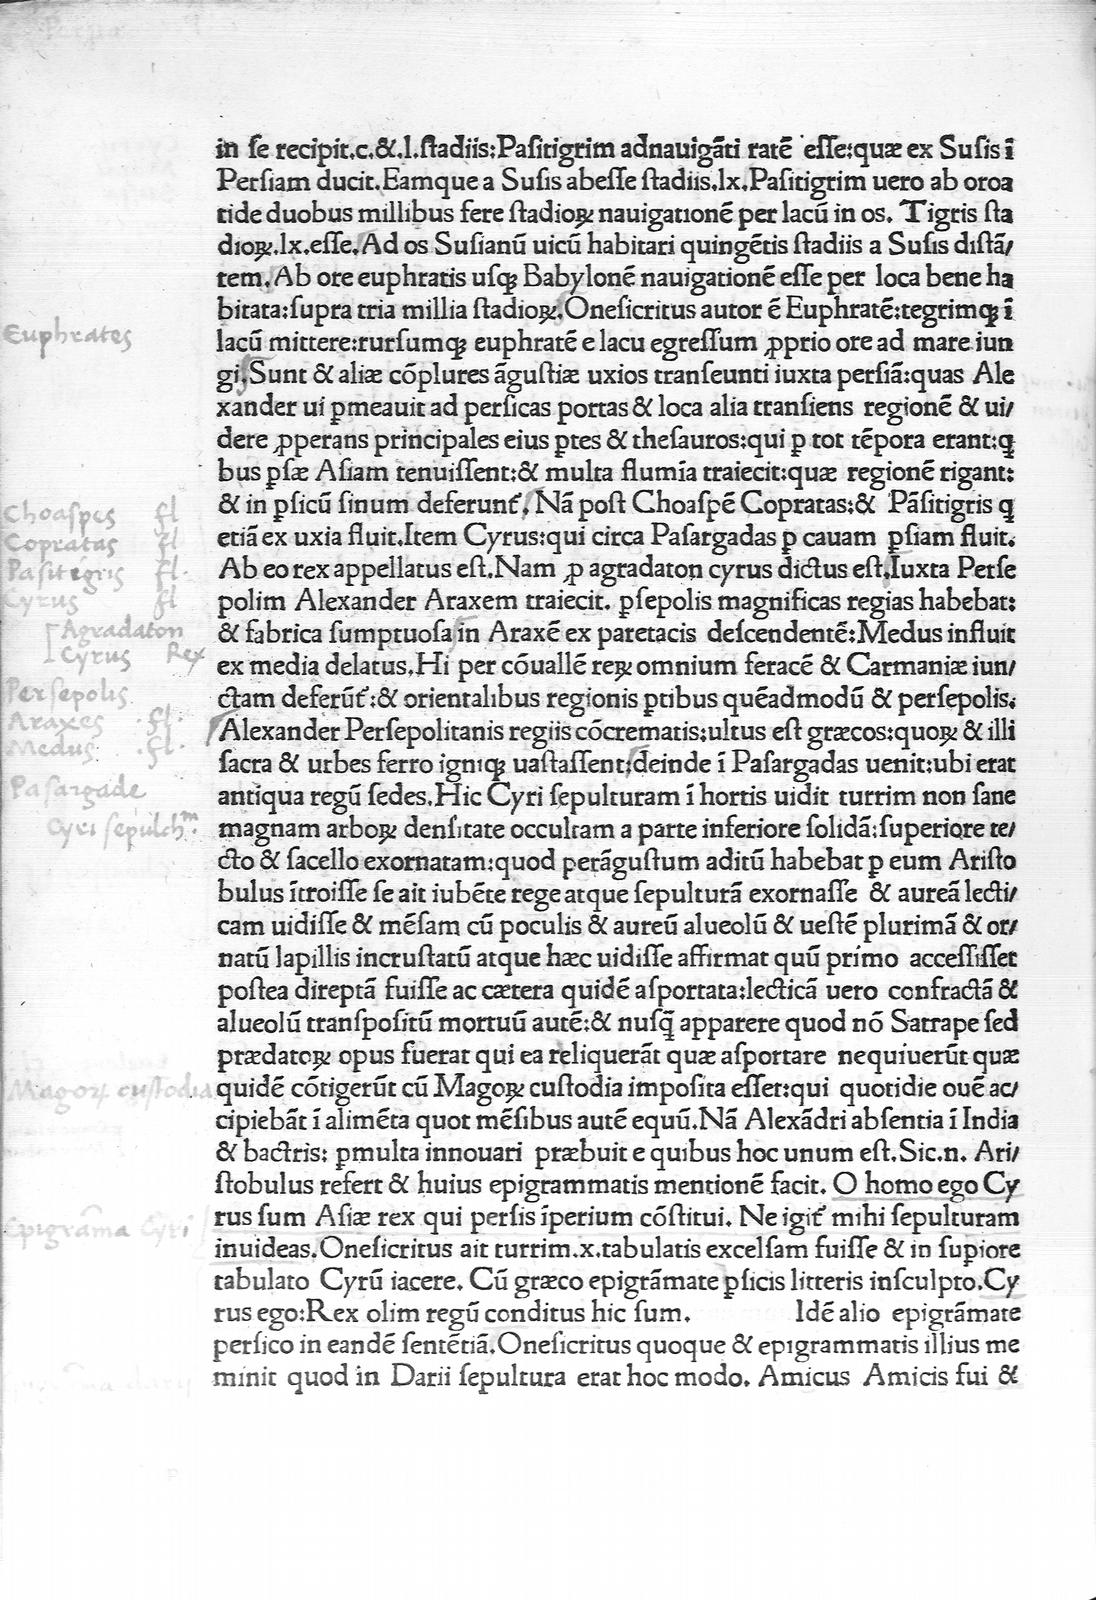 in ſe recipit.c.&.l.ſtadiis:Paſitigrim adnauigāti ratē eſſe:quæ ex Suſis ī
Perſiam ducit.Eamque a Suſis abeſſe ſtadiis.lx.Paſitigrim uero ab oroa
tide duobus millibus fere ſtadioꝝ nauigationē per lacū in os. Tigris ſta
dioꝝ.lx.eſſe.Ad os Suſianū uicū habitari quingētis ſtadiis a Suſis diſtā/
tem.Ab ore euphratis uſqꝫ Babylonē nauigationē eſſe per loca bene ha
bitata:ſupra tria millia ſtadioꝝ.Oneſicritus autor ē Euphratē:tegrimqꝫ ī
lacū mittere:rurſumqꝫ euphratē e lacu egreſſum ꝓprio ore ad mare iun
gi.Sunt & aliæ cōplures āguſtiæ uxios tranſeunti iuxta perſiā:quas Ale
xander ui ꝑmeauit ad perſicas portas & loca alia tranſiens regionē & ui/
dere ꝓperans principales eius ꝑtes & theſauros:qui ꝑ tot tēpora erant:q̄
bus ꝑſæ Aſiam tenuiſſent:& multa flumīa traiecit:quæ regionē rigant:
& in ꝑſicū ſinum deferunt̃. Nā poſt Choaſpē Copratas:& Pāſitigris q̄
etiā ex uxia fluit.Item Cyrus:qui circa Paſargadas ꝑ cauam ꝑſiam fluit.
Ab eo rex appellatus eſt.Nam ꝓ agradaton cyrus dictus eſt.Iuxta Perſe
polim Alexander Araxem traiecit. ꝑſepolis magnificas regias habebat:
& fabrica ſumptuoſa in Araxē ex paretacis deſcendentē:Medus influit
ex media delatus.Hi per cōuallē reꝝ omnium feracē & Carmaniæ iun/
ctam deferūt̃:& orientalibus regionis ꝑtibus quēadmodū & perſepolis.
Alexander Perſepolitanis regiis cōcrematis:ultus eſt græcos:quoꝝ & illi
ſacra & urbes ferro igniqꝫ uaſtaſſent:deinde ī Paſargadas uenit:ubi erat
antiqua regū ſedes.Hic Cyri ſepulturam ī hortis uidit turrim non ſane
magnam arboꝝ denſitate occultam a parte inferiore ſolidā:ſuperiore te/
cto & ſacello exornatam:quod perāguſtum aditū habebat ꝑ eum Ariſto
bulus ītroiſſe ſe ait iubēte rege atque ſepulturā exornaſſe & aureā lecti/
cam uidiſſe & mēſam cū poculis & aureū alueolū & ueſtē plurimā & or/
natū lapillis incruſtatū atque hæc uidiſſe affirmat quū primo acceſſiſſet
poſtea direptā fuiſſe ac cætera quidē aſportata:lecticā uero confractā &
alueolū tranſpoſitū mortuū autē:& nuſq̄ apparere quod nō Satrape ſed
prædatoꝝ opus fuerat qui ea reliquerāt quæ aſportare nequiuerūt quæ
quidē cōtigerūt cū Magoꝝ cuſtodia impoſita eſſet:qui quotidie ouē ac/
cipiebāt ī alimēta quot mēſibus autē equū.Nā Alexādri abſentia ī India
& bactris: ꝑmulta innouari præbuit e quibus hoc unum eſt.Sic.n. Ari/
ſtobulus refert & huius epigrammatis mentionē facit. O homo ego Cy
rus ſum Aſiæ rex qui perſis īperium cōſtitui. Ne igit̃ mihi ſepulturam
inuideas.Oneſicritus ait turrim.x.tabulatis excelſam fuiſſe & in ſuꝑiore
tabulato Cyrū iacere. Cū græco epigrāmate ꝑſicis litteris inſculpto.Cy
rus ego:Rex olim regū conditus hic ſum. Idē alio epigrāmate
perſico in eandē ſentētiā.Oneſicritus quoque & epigrammatis illius me
minit quod in Darii ſepultura erat hoc modo. Amicus Amicis fui &
Euphrates
Choaſpes fl
Copratas fl
Paſitegris fl.
Cyrus fl
Agradaton
Cyrus Rex
Perſepolis
Araxes .fl.
Medus .fl.
Paſargade
Cyri ſepulchᵐ.
Magoꝝ cuſtodia
Epigrāma Cyri